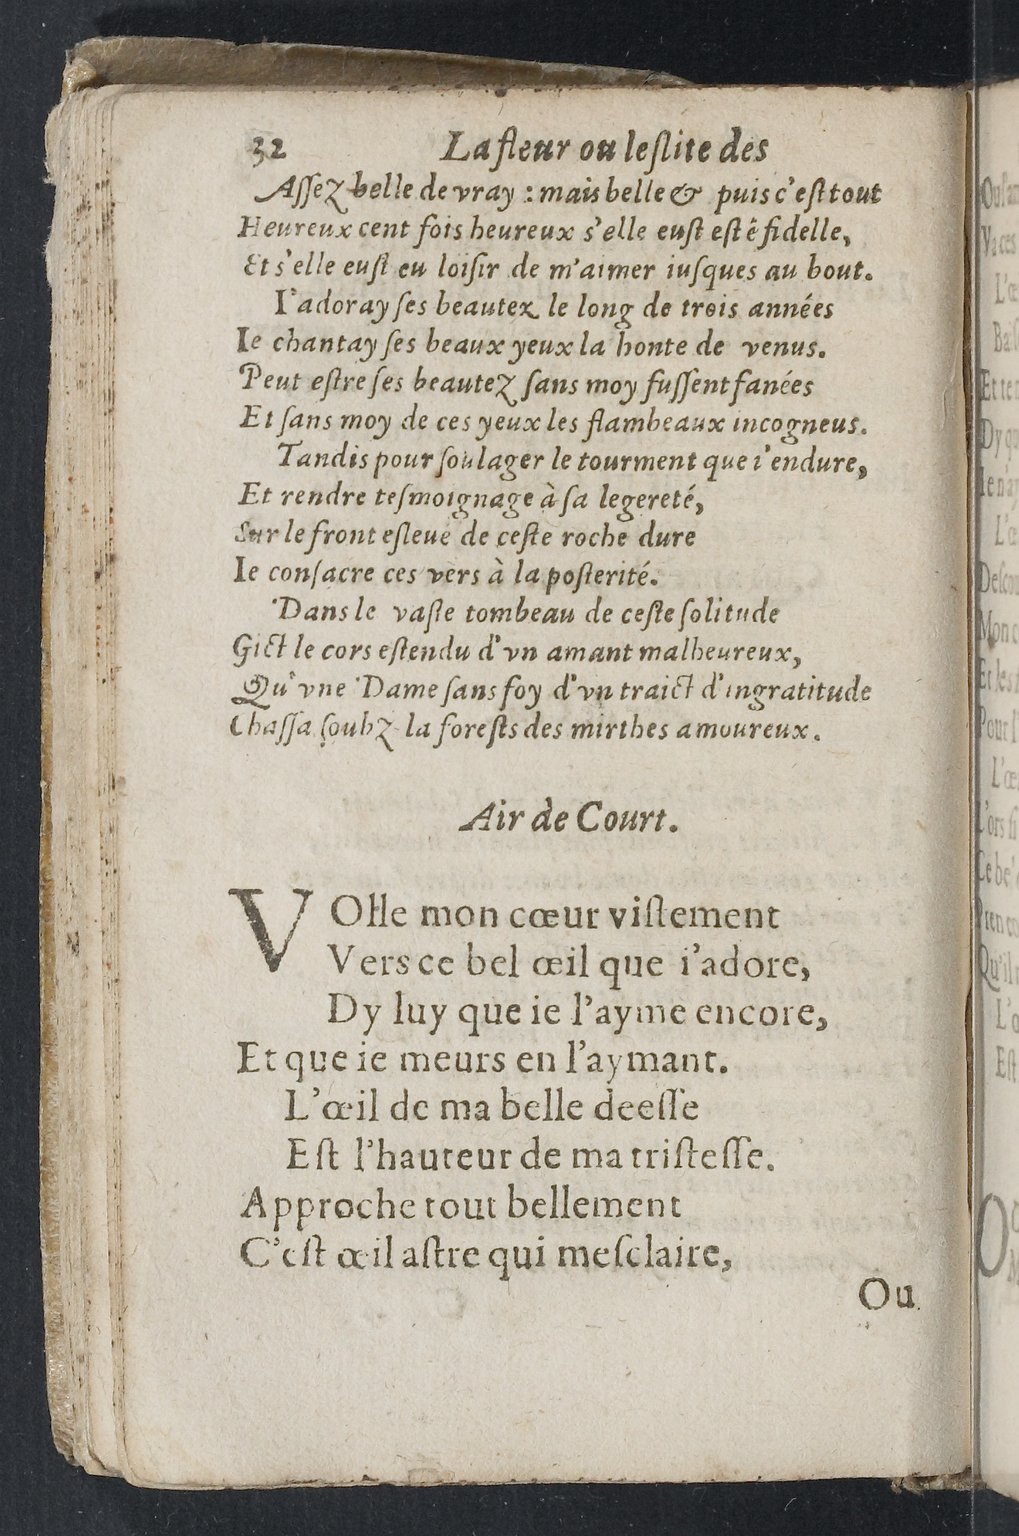 32 La fleur ou leſlite des
Aſſez belle de vray : mais belle & puis c'eſt tout
Heureux cent fois heureux s'elle euſt eſté fidelle,
Et s'elle euſt eu loiſir de m'aimer iuſques au bout.
I'adoray ſes beautez le long de trois années
Ie chantay ſes beaux yeux la honte de venus.
Peut eſtre ſes beautez ſans moy fuſſent fanées
Et ſans moy de ces yeux les flambeaux incogneus.
Tandis pour ſoulager le tourment que i'endure,
Et rendre teſmoignage à ſa legereté,
Sur le front eſleue de ceſte roche dure
Ie conſacre ces vers à la poſterité.
Dans le vaſte tombeau de ceſte ſolitude
Gict le cors eſtendu d'vn amant malheureux,
Qu'vne Dame ſans foy d'vn traict d'ingratitude
Chaſſa ſoubz la foreſts des mirthes amoureux.
Air de Court.
VOlle mon cœur viſtement
Vers ce bel œil que i'adore,
Dy luy que ie l'ayme encore,
Et que ie meurs en l'aymant.
L'œil de ma belle deeſſe
Eſt l'hauteur de ma triſteſſe.
Approche tout bellement
C'eſt œil aſtre qui meſclaire,
Ou